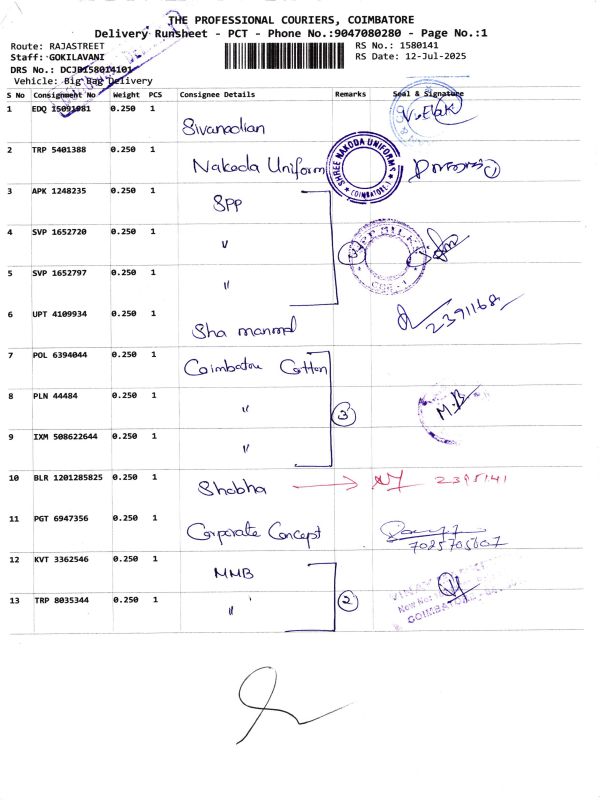 THE PROFESSIONAL COURIERS, COIMBATORE
Delivery Runsheet - PCT - Phone No.:9047080280 - Page No.:1
Route: RAJASTREET
RS No.: 1580141
Staff: GOKILAVANI
RS Date: 12-Jul-2025
DRS No.: DCJB158014101
Vehicle: Big Bag Delivery
S No Consignment No Weight PCS Consignee Details Remarks Seal & Signature
1 EDQ 15091981 0.250 1
Sivanadian V.Elak
2 TRP 5401388 0.250 1
Nakoda Uniform SHREE NAKODA UNIFORMS COIMBATORE-1
3 APK 1248235 0.250 1
SPP
4 SVP 1652720 0.250 1
〃 3
5 SVP 1652797 0.250 1
〃
6 UPT 4109934 0.250 1
Sha manmal 2391168
7 POL 6394044 0.250 1
Coimbatore Cotton
8 PLN 44484 0.250 1
〃 3 M.B
9 IXM 508622644 0.250 1
〃
10 BLR 1201285825 0.250 1
Shobha → 2395141
11 PGT 6947356 0.250 1
Corporate Concept
7025705607
12 KVT 3362546 0.250 1
MMB
13 TRP 8035344 0.250 1
〃 2 COIMBATORE